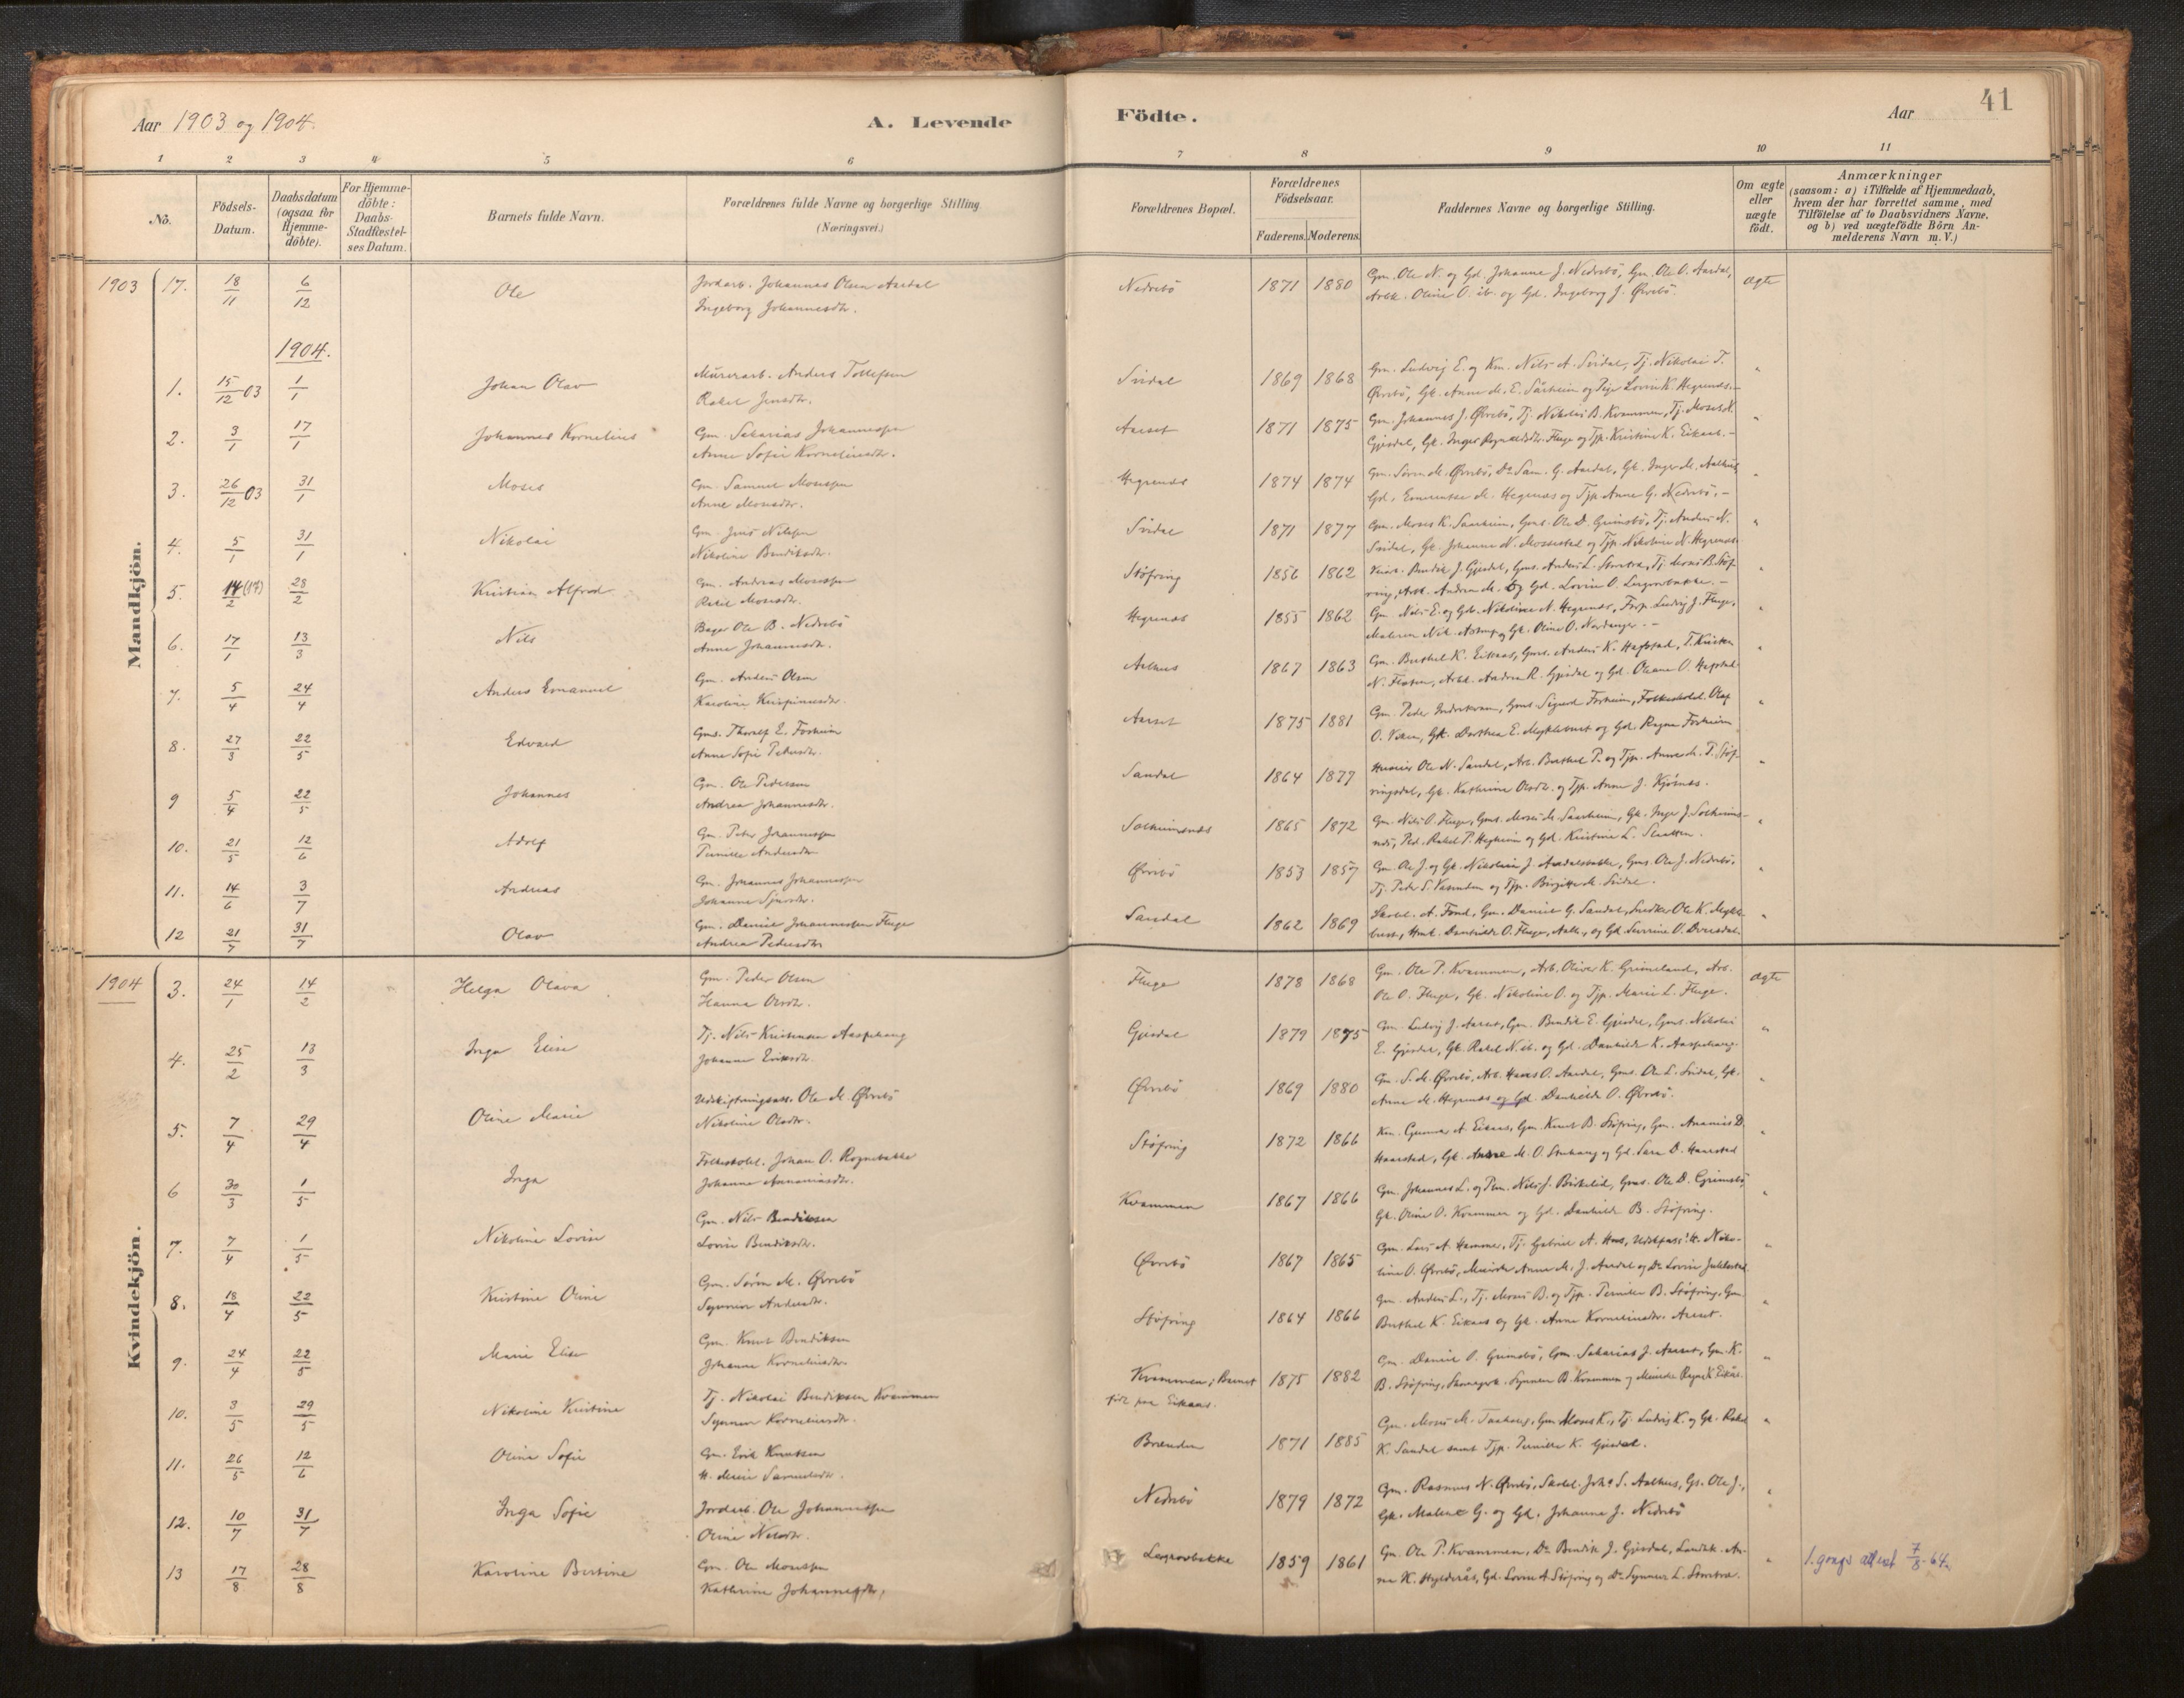 41
Aar 1903 og 1904.
A. Levende Födte.
Aar
1 2 3 4 5 6 7 8 9 10 11
No.
Födsels-Datum.
Daabsdatum (ogsaa för Hjemmedöbte).
For Hjemmedöbte: Daabs-Stadfæstelses Datum.
Barnets fulde Navn.
Forældrenes fulde Navne og borgerlige Stilling. (Næringsvei.)
Forældrenes Bopæl.
Forældrenes Födselsaar.
Faderens. Moderens.
Faddernes Navne og borgerlige Stilling.
Om ægte eller uægte födt.
Anmærkninger
(saasom: a) i Tilfælde af Hjemmedaab, hvem der har forrettet samme, med Tilföielse af to Daabsvidners Navne, og b) ved uægtefödte Börn Anmelderens Navn m. V.)
Mandkjön.
1903 17. 18/11 6/12 Ole
Jordarb. Johannes Olsen Aardal
Ingeborg Johannesdtr.
Nedrebö 1871 1880
Gm. Ole N. og Gd. Johanne J. Nedrebö, Gm. Ole O. Aardal,
Arbk. Oline O. ib. og Gd. Ingeborg J. Øvrebö.
ægte
1904.
1. 15/12 03 1/1 Johan Olav
Murerarb. Anders Tollefsen
Rakel Jensdtr.
Svidal 1869 1868
Gm. Ludvig E. og Km. Nils A. Svidal, Tj. Nikolai T.
Øvrebö, Gk. Anne M. E. Sårheim og Pige Lovise K. Hegrenæs.
"
2. 3/1 17/1 Johannes Kornelius
Gm. Sakarias Johannessen
Anne Sofie Korneliusdtr.
Aarset 1871 1875
Gm. Johannes J. Øvrebö, Tj. Nikolai B. Kvammen, Tj. Moses K.
Gjesdal, Gk. Inger Rognaldsdtr. Fluge og Tjp. Kristine K. Eikaas.
"
3. 26/12 03 31/1 Moses
Gm. Samuel Mosessen
Anne Monsdtr.
Hegrenæs 1874 1874
Gm. Sören M. Øvrebö, Do Sam. G. Aardal, Gk. Inger M. Aalhus
Gd. M. Hegrenæs og Tjp. Anne G. Nedrebö.
4. 5/1 31/1 Nikolai
Gm. Jens Nilssen
Nikoline Bendiksdtr.
Svidal 1871 1877
Gm. Moses K. Saarheim, Gms. Ole D. Grimsbö, Tj. Anders N.
Svidal, Gk. Johanne N. og Tjp. Nikoline N. Hegrenæs.
"
5. 14/2 (17) 28/2 Kristian Alfred
Gm. Andreas Mosessen
Rakel Mosesdtr.
Støfring 1856 1862
Bendik J. Gjesdal, Gms. Anders L. Storstra, Tj. Moses B. Støf-
ring, Arbk. Andrea M. og Gd. Lovise O. Legrovbakke.
"
6. 17/1 13/3 Nils
Bager Ole B. Nedrebö
Anne Johannesdtr.
Hegrenæs 1855 1862
Gm. Nils E. og Gk. Nikoline N. Hegrenæs, Forp. Ludvig J. Fluge,
Maleren Nik. Astrup og Gk. Oline O. Nordanger.
"
7. 5/4 24/4 Anders Emanuel
Gm. Anders Olsen
Karoline Krispinusdtr.
Aalhus 1867 1863
Gm. Berthel K. Eikaas, Gms. Anders K. Hafstad, T. Kristen
N. Flaten, Arbk. Andrea R. Gjesdal og Gd. Oleane O. Hafstad
"
8. 27/3 22/5 Edvard
Gms. Thorolf E. Forheim
Anne Sofie Pedersdtr.
Aarset 1875 1881
Gm. Peder Indrekvam, Gms. Sigurd Forheim, Folkeskolel. Olaf
O. Viken, Gk. Dorthea E. Myklebust og Gd. Ragna Forheim
"
9 5/4 22/5 Johannes
Gm. Ole Pedersen
Andrea Johannesdtr.
Sandal 1864 1877
Ole N. Sandal, Arb. Berthel P. og Tjp. Anne M. P. Støf-
ringsdal, Gk. Kathrine Olsdtr. og Tjp. Anne J. Kjörnæs.
"
10. 21/5 12/6 Adolf
Gm. Peter Johannessen
Pernille Andersdtr.
Solheimsnæs 1865 1872
Gm. Nils O. Fluge, Gms. Moses M. Saarheim, Gk. Inger J. Solheims-
næs, Ped. Rakel P. Hegheim og Gd. Kristine L. Slaatten.
"
11. 14/6 3/7 Andreas
Gm. Johannes Johannessen
Johanne Sjursdtr.
Øvrebö 1853 1857
Gm. Ole J. og Gk. Nikoline J. Aardalsbakke, Gms. Ole J. Nedrebö,
Tj. Peder S. Vasenden og Tjp. Birgitte M. Svidal.
"
12 21/7 31/7 Olav
Gm. Daniel Johannessen Fluge
Andrea Pedersdtr
Sandal 1862 1869
A. Fond, Gm. Daniel G. Sandal, Snedker Ole K. Mykle-
bust, Danhilde O. Fluge, Aalh., og Gd. Severine O. Dvergsdal.
"
Kvindekjön.
1904 3. 24/1 14/2 Helga Olava
Gm. Peder Olsen
Hanna Olsdtr.
Fluge 1878 1868
Gm. Ole P. Kvammen, Arb. Oliver K. Grimeland, Arb.
Ole O. Fluge, Gk. Nikoline O. og Tjp. Marie L. Fluge.
ægte
4. 25/2 13/3 Inga Elise
Tj. Nils Kristensen Aaspehaug
Johanne Eriksdtr.
Gjesdal 1879 1875
Gm. Ludvig J. Aarset, Gm. Bendik E. Gjesdal, Gms. Nikolai
E. Gjesdal, Gk. Rakel N. ib. og Gd. Danhilde K. Aaspehaug.
"
5. 7/4 29/4 Oline Marie
Udskiftningsass. Ole M. Øvrebö
Nikoline Olsdtr.
Øvrebö 1869 1880
Gm. S. M. Øvrebö, Arb. Hans O. Aardal, Gms. Ole L. Svidal, Gk.
Anne M. Hegrenæs og Gd. Danhilde O. Øvrebö.
"
6 30/3 1/5 Inga
Folkeskolel. Johan O. Rognebakke
Johanne Annaniasdtr.
Støfring 1872 1866
Km. Gunnar A. Eikaas, Gm. Knut B. Støfring, Gm. Ananias D.
Haarstad, Gk. Anne M. O. Stuhaug og Gd. Sara D. Haarstad
"
7. 7/4 1/5 Nikoline Lovise
Gm. Nils Bendiksen
Lovise Bendiksdtr.
Kvammen 1867 1866
Gm. Johannes L. og Pm. Nils J. Birkelid, Gms. Ole D. Grimsbö,
Gk. Oline O. Kvammen og Gd. Danhilde B. Støfring.
"
8. 18/4 22/5 Kristine Oline
Gm. Sören M. Øvrebö
Synneve Andersdtr.
Øvrebö 1867 1865
Gm. Lars A. Hamme, Tj. Gabriel A. Hus, Udskfass. H. Niko-
line O. Øvrebö, Meierske Anne M. J. Aardal og Do Lovise Juklestad
"
9. 24/4 22/5 Marie Elise
Gm. Knut Bendiksen
Johanne Korneliusdtr.
Støfring 1864 1866
Gm. Anders L., Tj. Moses B. og Tjp. Pernille B. Støfring, Gm.
Berthel K. Eikaas og Gk. Anne Korneliusdtr. Aarset.
"
10. 3/5 29/5 Nikoline Kristine
Tj. Nikolai Bendiksen Kvammen
Synneve Korneliusdtr.
Kvammen; Barnet født paa Eikaas. 1875 1882
Gm. Daniel O. Grimsbö, Gm. Sakarias J. Aarset, Gm. K.
B. Støfring, Synneve B. Kvammen og Meierske Ragna K. Eikås.
"
11. 26/5 12/6 Olina Sofie
Gm. Erik Knutsen
H. Marie Samuelsdtr.
Brænden 1871 1885
Gm. Moses M. Taahaug, Gm Moses K., Tj. Ludvig K. og Gk. Rakel
K. Sandal samt Tjp. Pernille K. Gjesdal.
"
12. 10/7 31/7 Inga Sofie
Jordarb. Ole Johannessen
Oline Nilsdtr.
Nedrebö 1879 1872
Gm. Rasmus N. Øvrebö, Skolel. Johs S. Aalhus, Gs. Ole J.,
Gk. Malene G. og Gd. Johanne J. Nedrebö
"
13 17/8 28/8 Karoline Bertine
Gm. Ole Mosessen
Kathrine Johannesdtr.
Legrovbakke 1859 1861
Gm. Ole P. Kvammen, Do Bendik J. Gjesdal, Landhk. An-
ne K. Hylderås, Gd. Lovise A. Støfring og Do Synneve L. Storstrå.
"
1. gangs attest 7/8-64.